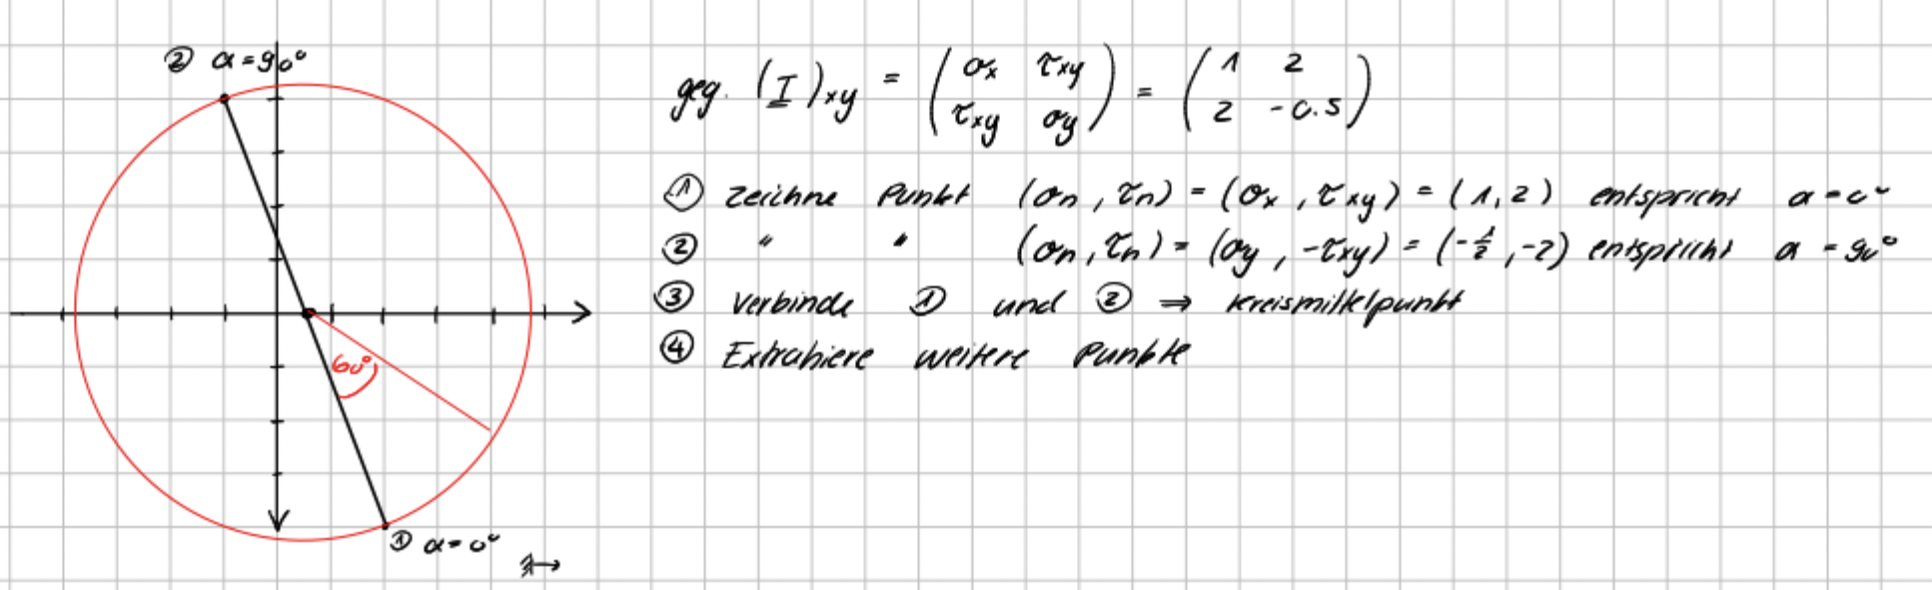 ② α = 90°
geg. (I)xy = (σx τxy τxy σy) = (1 2 2 -0.5)
① Zeichne Punkt (σn, τn) = (σx, τxy) = (1, 2) entspricht α = 0°
② " " (σn, τn) = (σy, -τxy) = (-1/2, -2) entspricht α = 90°
③ Verbinde ① und ② ⇒ Kreismittelpunkt
④ Extrahiere weitere Punkte
60°
① α = 0°